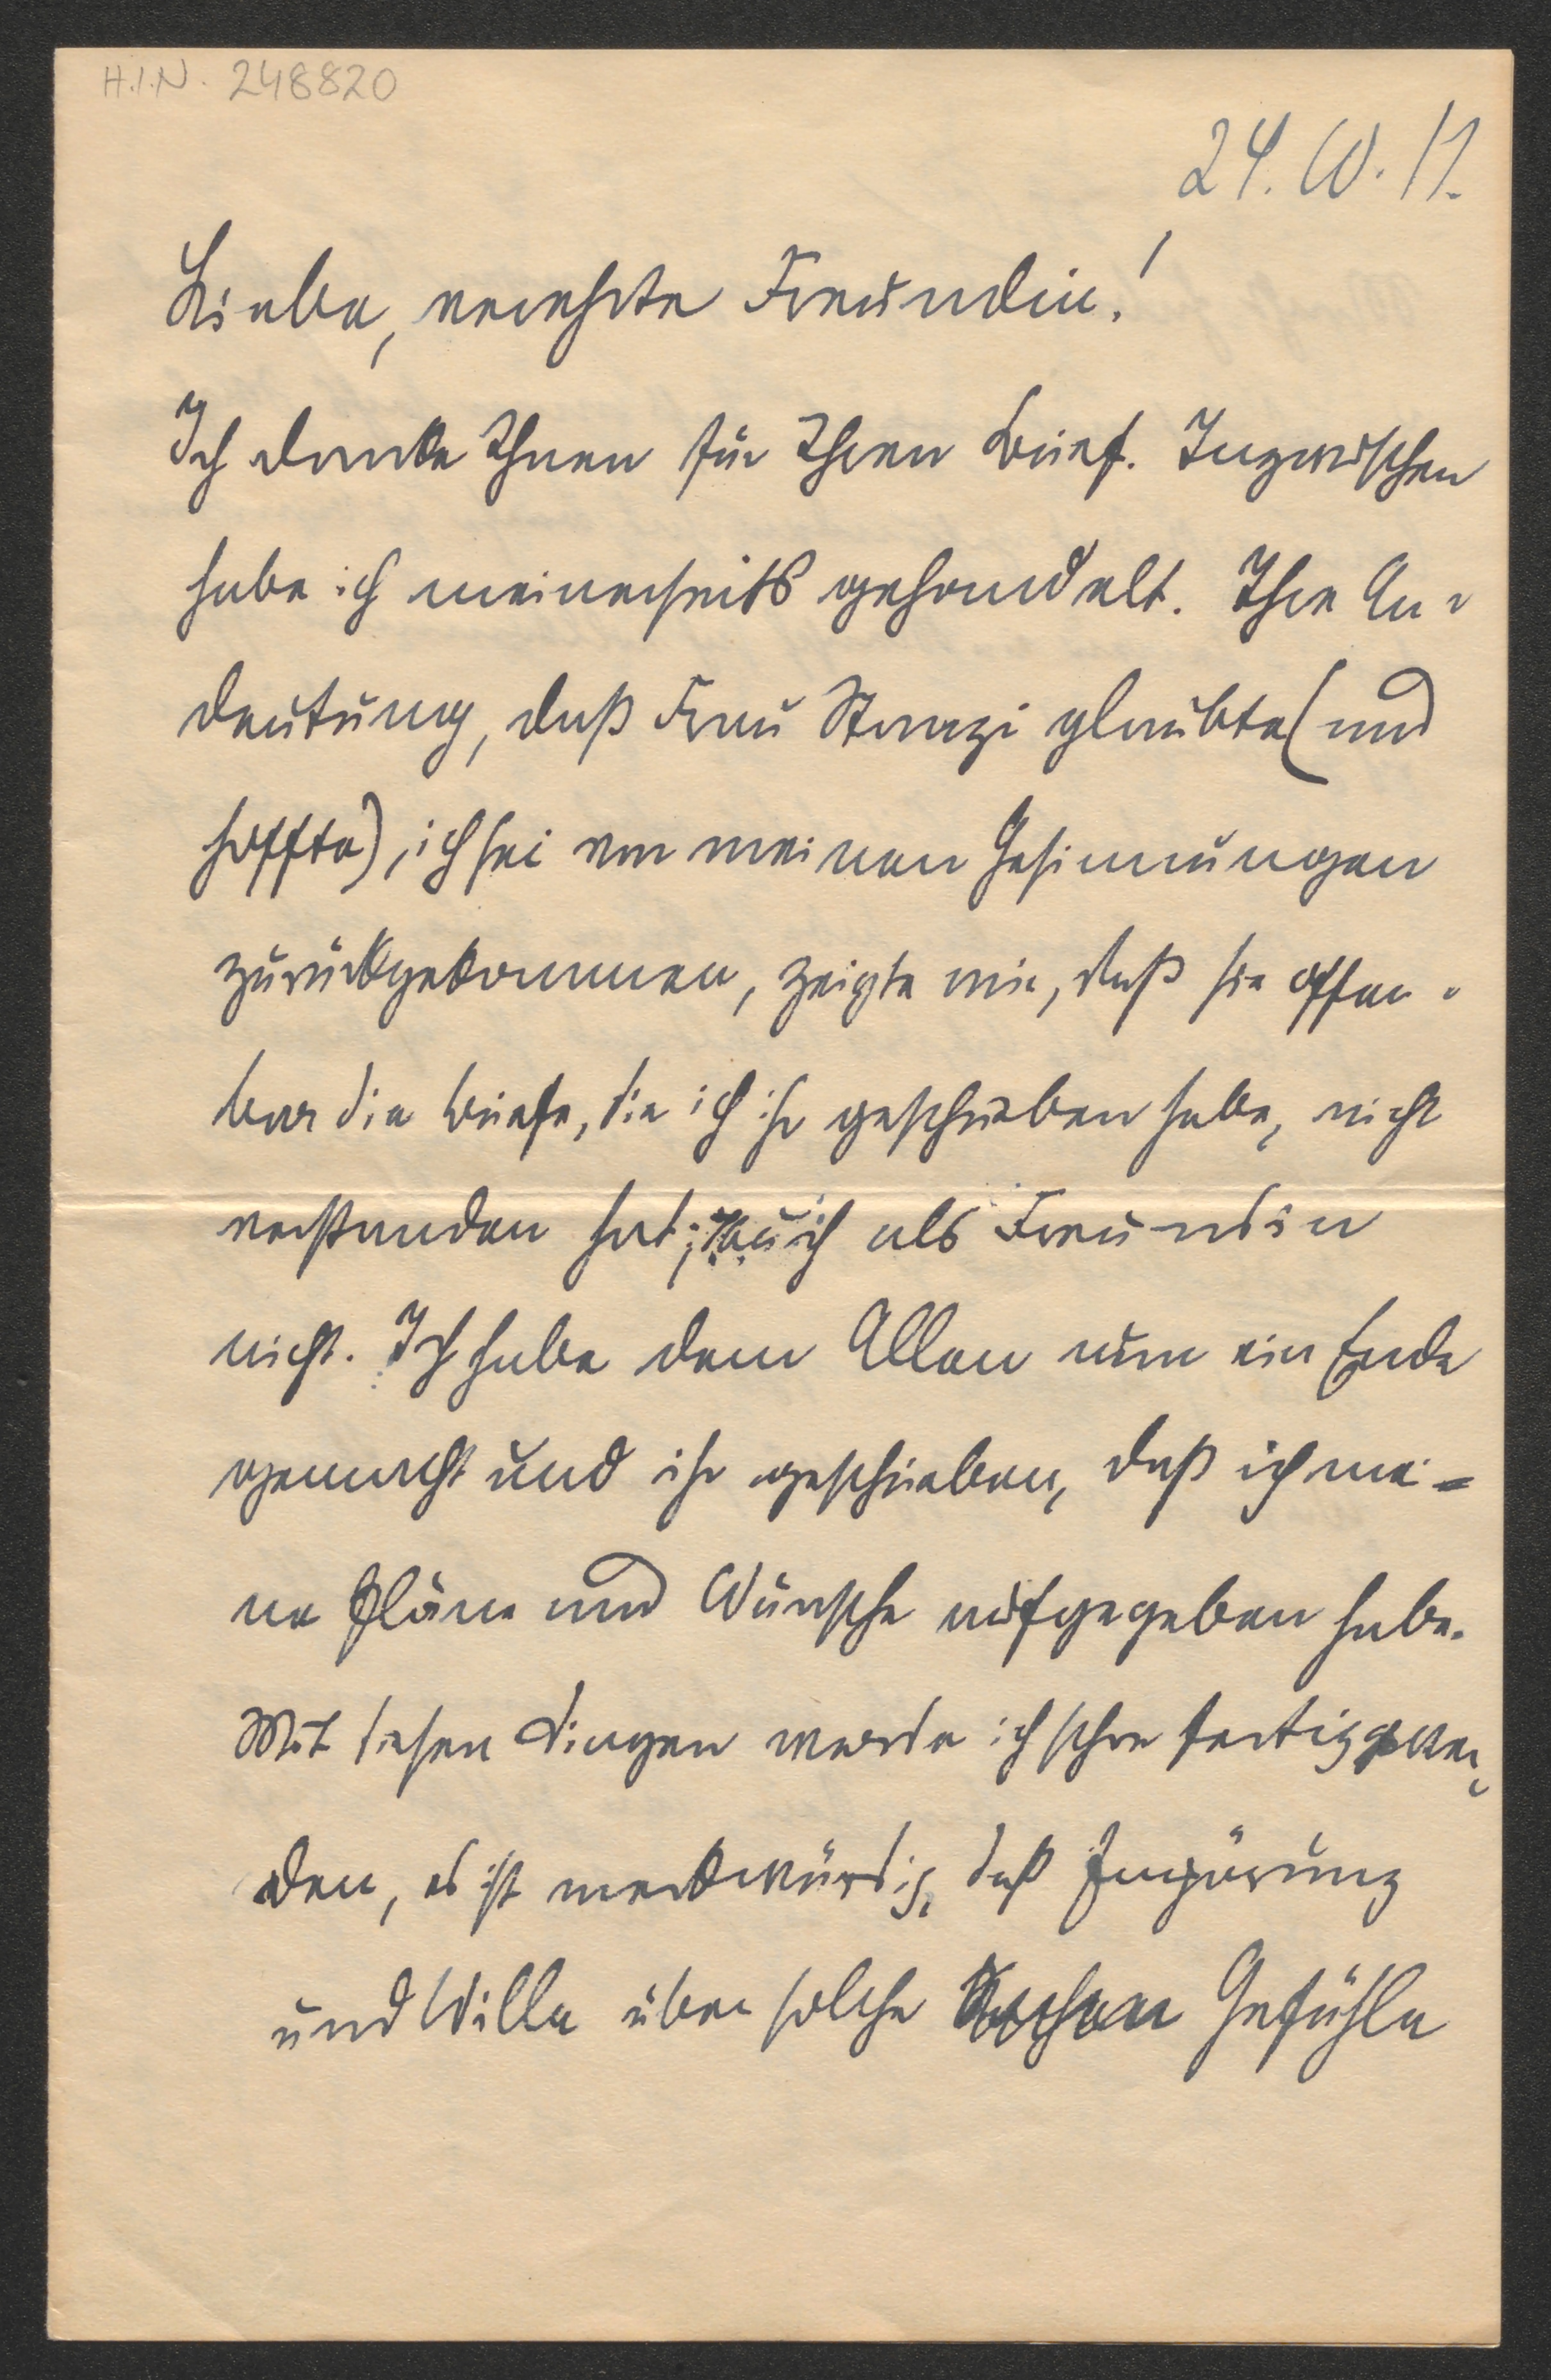 H.I.N. 248820
24. W. 11.
Liebe, verehrte Freundin!
Ich danke Ihnen für Ihren Brief. Inzwischen
habe ich meinerseits gehandelt. Ihre An-
deutung, daß Frau Stanzi glaubte (und
hoffte), ich sei von meinen Gesinnungen
zurückgekommen, zeigte mir, daß sie offen-
bar die Briefe, die ich ihr geschrieben habe, nicht
verstanden hat; auch als Freundin
nicht. Ich habe dem Allen nun ein Ende
gemacht und ihr geschrieben, daß ich mei-
ne Pläne und Wünsche aufgegeben habe.
Mit diesen Dingen werde ich schon fertig wer-
den, es ist merkwürdig, daß Empörung
und Wille über solche Gefühle